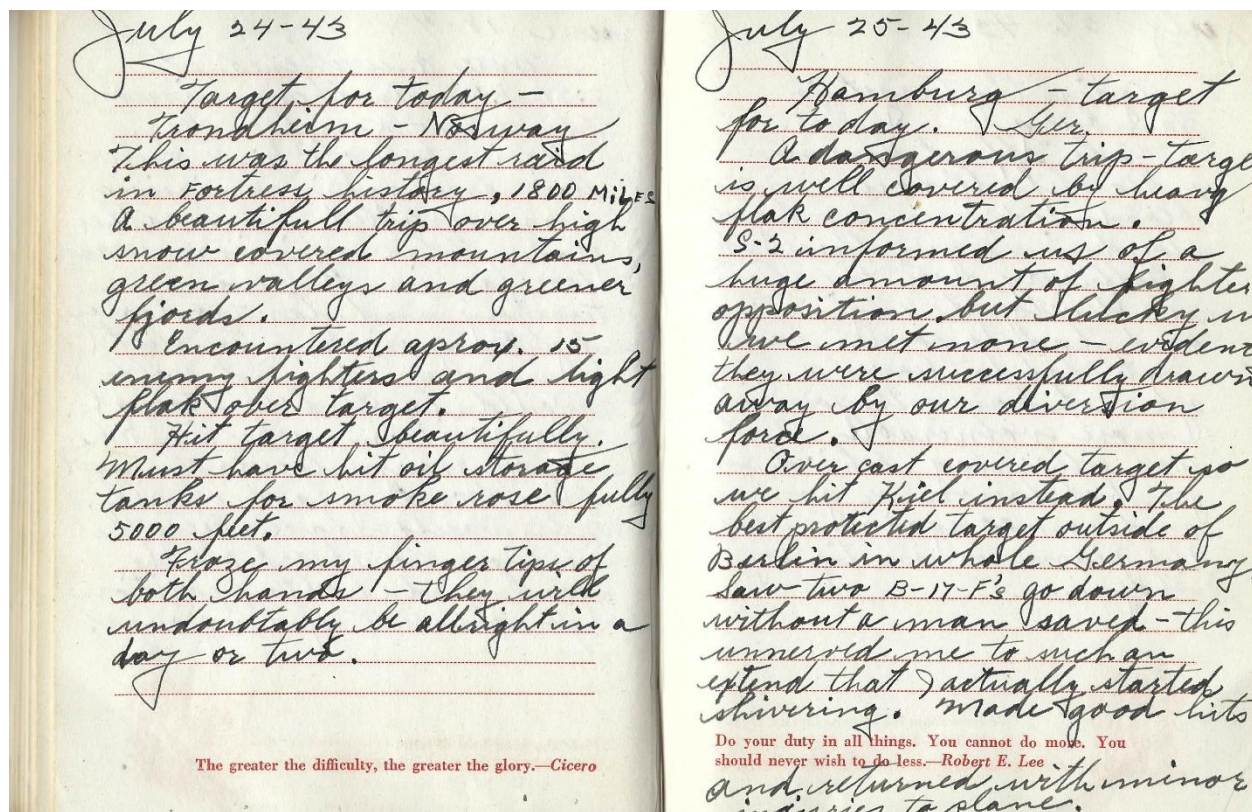 July 24-43
Target for today -
Trondheim - Norway
This was the longest raid
in Fortress history, 1800 MiLES
A beautifull trip over high
snow covered mountains,
green valleys and greener
fjords.
Encountered aprox. 15
enemy fighters and light
flak over target.
Hit target beautifully.
Must have hit oil storage
tanks for smoke rose fully
5000 feet.
Froze my finger tips of
both hands - they will
undoubtably be allright in a
day or two.
The greater the difficulty, the greater the glory.—Cicero
July 25-43
Hamburg - target
for today. Ger.
A dangerous trip - targe
is well covered by heavy
flak concentration.
S-2 informed us of a
huge amount of fighter
opposition, but lucky
we met none - eviden
they were successfully drawn
away by our diversion
force.
Over cast covered target so
we hit Kiel instead. The
best protected target outside of
Berlin in whole Germany
Saw two B-17-F's go down
without a man saved - this
unnerved me to such an
extend that I actually started
shivering. Made good hits
Do your duty in all things. You cannot do more. You
should never wish to do less.—Robert E. Lee
and returned with minor
injuries to plane.